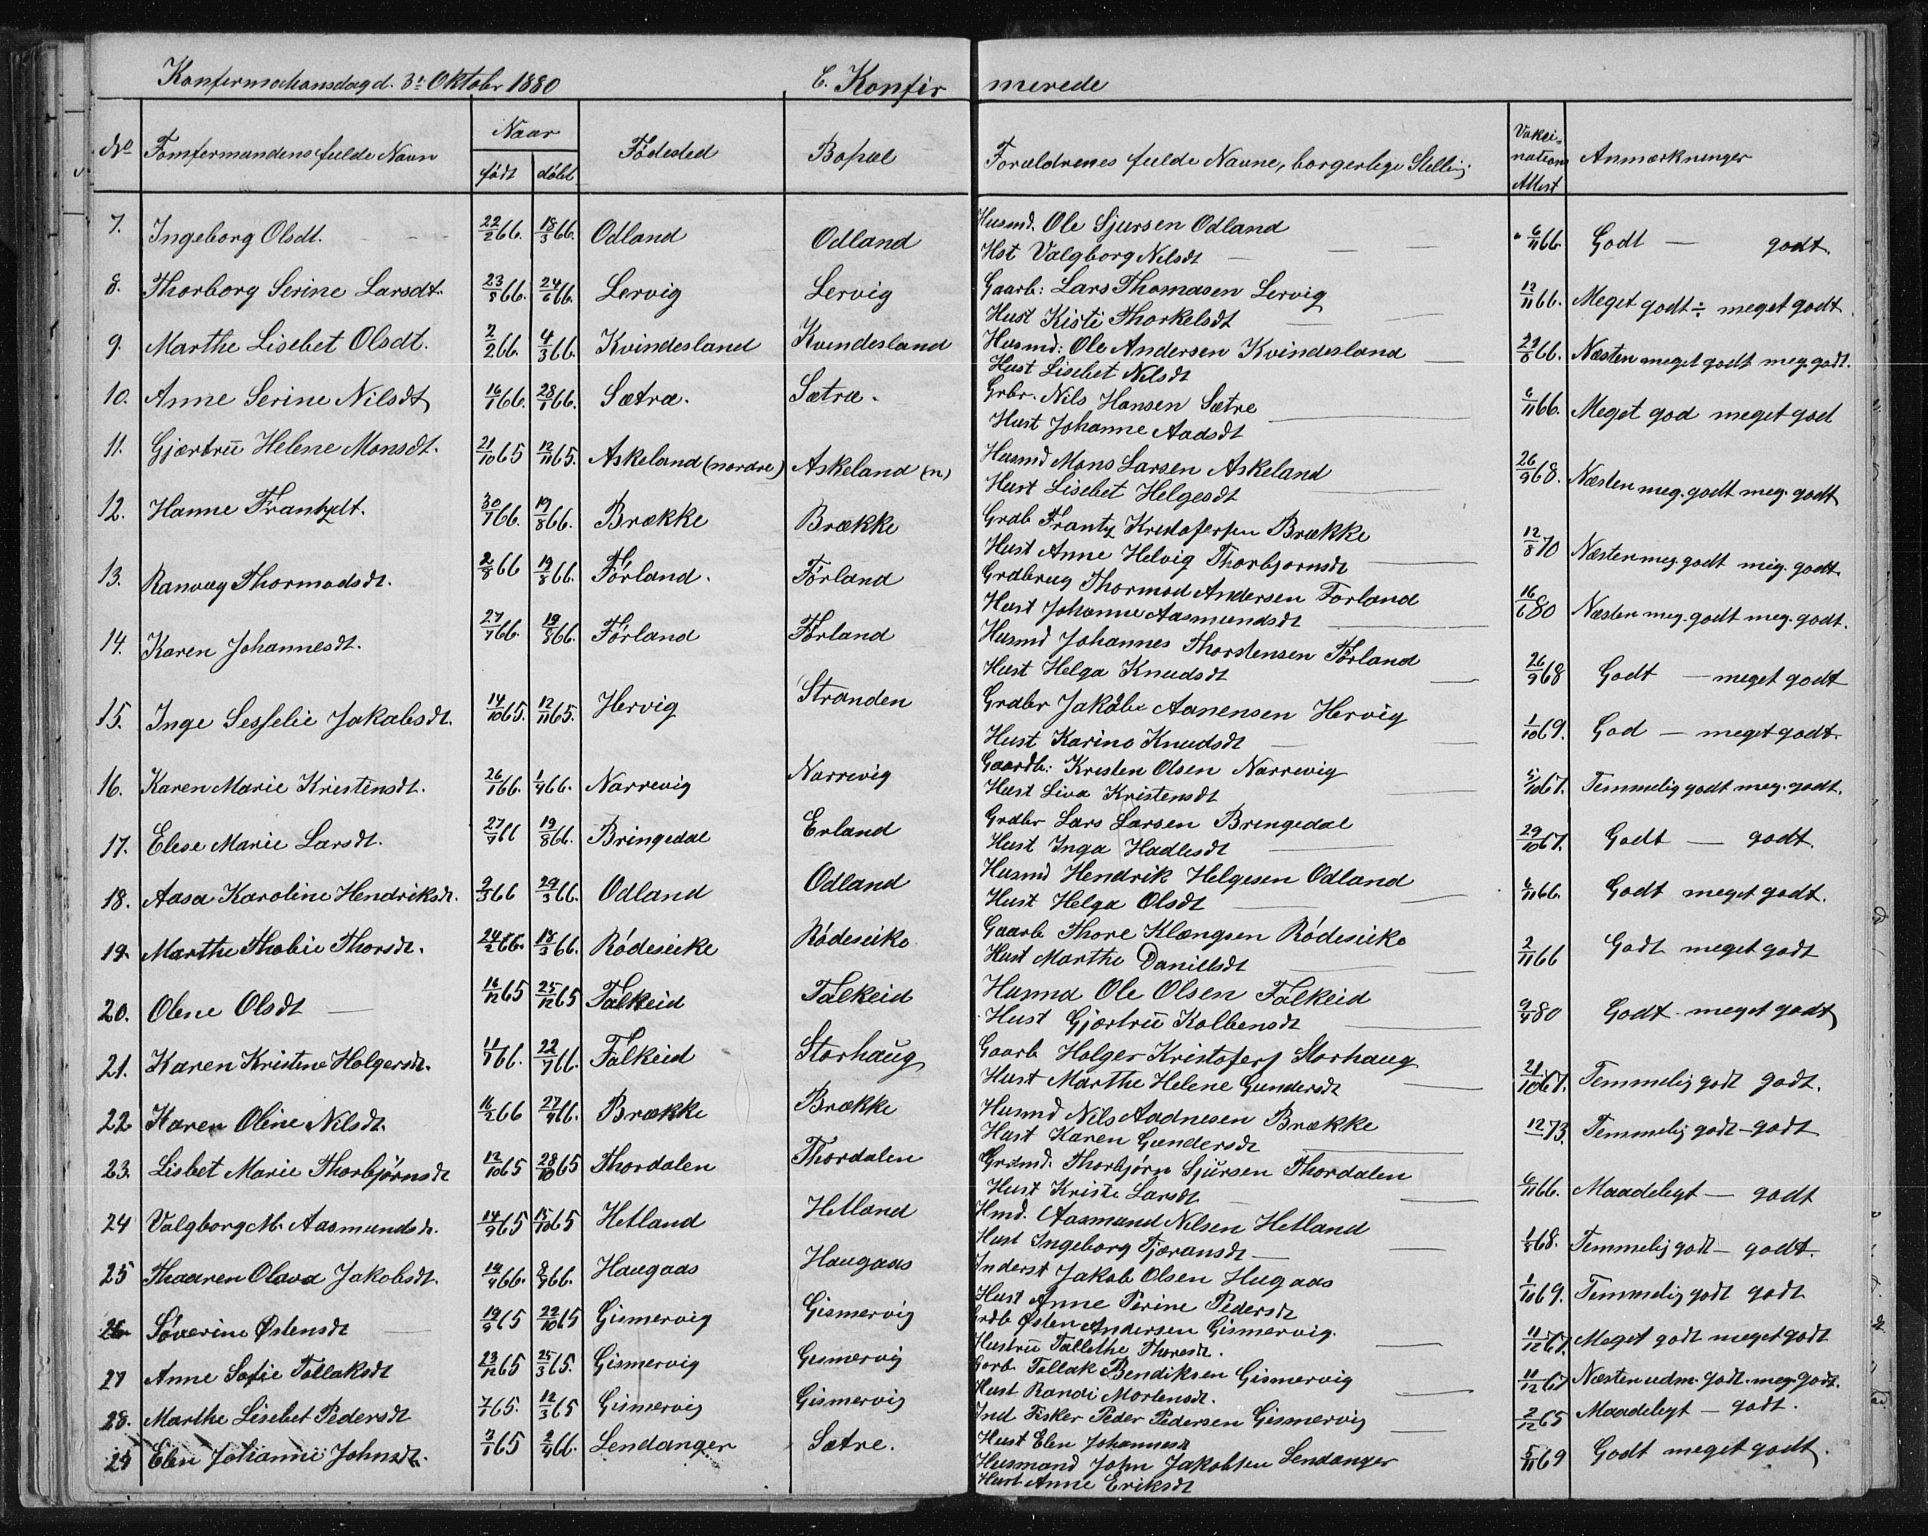 Konfermationsdag d. 3: Oktobr 1880 C. Konfir merede
No Komfermandens fulde Navn Naar født døbt Fødested Bopæl Forældrenes fulde Navne, borgerlige Stelling Vaksinations Attest Anmærkninger
7. Ingeborg Olsdt. 22/2 66. 18/3 66. Odland Odland Husmd. Ole Sjursen Odland 6/11 66. Godt — godt.
Hst Valgborg Nilsdt
8. Thorborg Serine Larsdt. 23/5 66. 24/6 66. Lervig Lervig Gaarb: Lars Thomasen Lervig 12/11 66. Meget godt ÷ meget godt
Hust Kisti Thorkelsdt
9. Marthe Lisebet Olsdt. 2/2 66. 4/3 66. Kvindesland Kvendesland Husmd: Ole Andersen Kvindesland 29/8 66. Næsten meget godt meg. godt.
Hust Lisebet Nilsdt
10. Anne Serine Nilsdt 16/1 66. 28/1 66. Sætra. Sætra. Grbr. Nils Hansen Sætre 6/11 66. Meget god meget god
Hust Johanne Aadsdt
11. Gjærtru Helene Monsdt. 21/10 65 12/11 65. Askeland (nordre) Askeland (n) Husmd Mons Larsen Askeland 26/9 68. Næsten meg. godt meg. godt
Hust Lisebet Helgesdt
12. Hanne Frantzdt. 30/7 66. 19/8 66. Brække Brække Grdb Frantz Kristofersen Brække 12/8 70 Næsten meg. godt meg. godt.
Hust Anne Helvig Thorbjornsdt
13. Ranvæg Thormodsdt. 2/8 66 19/8 66. Førland. Førland Grdbrug Thormod Andersen Forland 16/6 80 Næsten meg. godt meg. godt.
Hust Johanne Aasmundsdt
14. Karen Johannesdt. 27/7 66. 19/8 66. Førland Førland Husmd Johannes Thorstensen Førland 26/9 68 Godt — meget godt
Hust Helga Knudsdt
15. Inge Sesselie Jakobsdt. 14/10 65. 12/11 65. Hervig Stranden Grdbr Jakob Aanensen Hervig 1/10 69. God — meget godt.
Hust Karine Knudsdt
16. Karen Marie Kristensdt. 26/1 66. 1/4 66. Narrevig Narrevig Gaardb: Kristen Olsen Narrevig 5/10 67. Temmelig godt meg. godt.
Hust Siva Kristensdt
17. Elese Marie Larsdt. 27/7 66 19/8 66. Bringedal Erland Grdbr Lars Larsen Bringedal 29/10 67. Godt — godt.
Hust Inga Hadlesdt
18. Aasa Karoline Hendriksdt. 9/3 66 29/3 66. Odland Odland Husmd Hendrik Helgesen Odland 6/11 66. Godt meget godt.
Hust Helga Olsdt
19. Marthe Thobie Thorsdt. 24/2 66. 18/3 66. Rødeseike Rødeseike Gaarb Thore Klængsen Rødeseike 2/11 66 Godt meget godt
Hust Marthe Danielsdt
20. Olene Olsdt 16/12 65 25/12 65 Falkeid Falkeid Husmd Ole Olsen Falkeid 9/4 80 Godt meget godt
Hust Gjærtru Kolbensdt
21. Karen Kristine Holgersdt. 11/7 66. 22/7 66. Falkeid Storhaug Gaarb Holger Kristofers Storhaug 21/10 67. Temmelig godt godt.
Hust Marthe Helene Gundersdt
22 Karen Oline Nilsdt. 16/2 66 27/4 66. Brække Brække Husmd Nils Aadnesen Brække 12/ 73 Temmelig godt – godt
Hust Karen Gundersdt
23. Lisbet Marie Thorbjørnsdt 12/10 65 28/10 65 Thordalen Thordalen Grdmd. Thorbjørn Sjursen Thordalen 6/11 66. Maadeligt — godt
Hust Kriste Larsdt
24 Valgborg M. Aasmundsdt. 14/9 65 15/10 65 Hetland Hetland Hmd. Aasmund Nilsen Hetland 1/8 68. Temmelig godt – godt.
Hust Ingeborg Tjæransdt
25 Thaaren Olava Jakobsdt. 14/4 66. 8/4 66. Haugaas Haugaas Inderst Jakob Olsen Hugaas 1/10 69. Temmelig godt godt
Hust Anne Perine Pedersdt
26 Søverine Østensdt 19/9 65 22/10 65 Gismervig Gismervig Grdb Østen Andersen Gismervig 11/12 67. Meget godt meget godt
Hustru Tallethe Thoresdt.
27 Anne Sofie Tollaksdt 23/12 65 25/3 65. Gismervig Gismervig Gorb Tollak Bendiksen Gismervig 11/12 67 Næsten udm. godt. meg. godt.
Hust Randi Mortensdt.
28. Marthe Lisebet Pedersdt 7/1 65. 12/3 65 Gismervig Gismervig Ind Fisker Peder Pedersen Gismervig 2/12 65 Maadeligt – godt.
Hust Elen Johannesdt
29 Elen Johanne Johnsdt. 7/1 65 2/4 66. Lendanger Sætre. Husmand John Jakobsen Lendanger 5/11 69 Godt meget godt.
Hust Anne Eriksdt